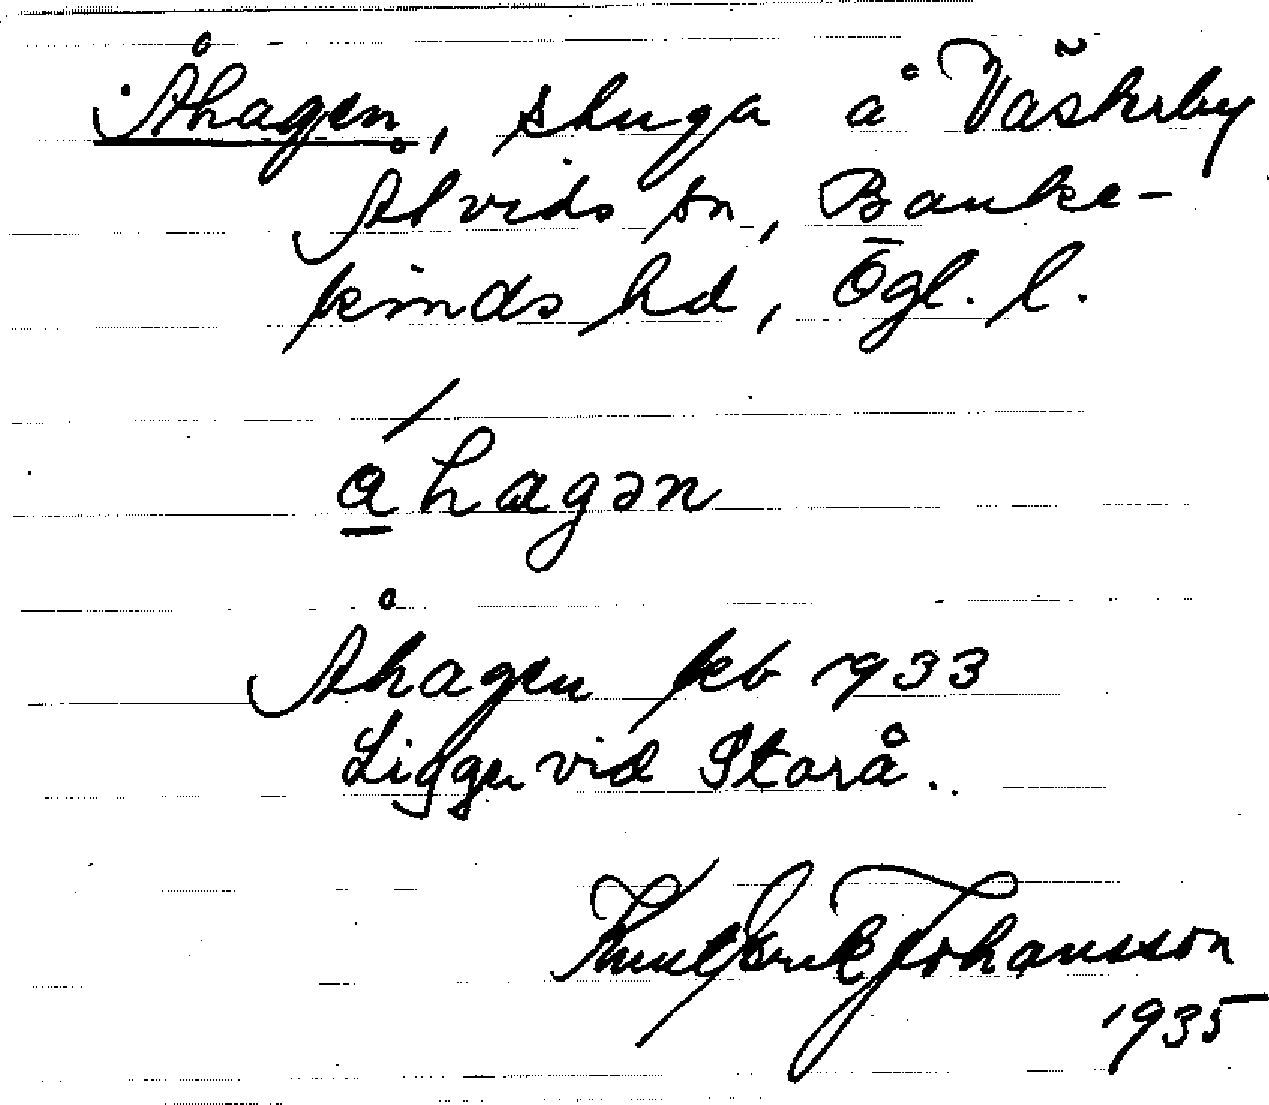 Åhagen, stuga å Västerby
Åtvids sn, Banke-
kinds hd, Ögl. l.
á̲hagən
Åhagen kb 1933
Ligger vid Storå.
Knut Erik Johansson
1935